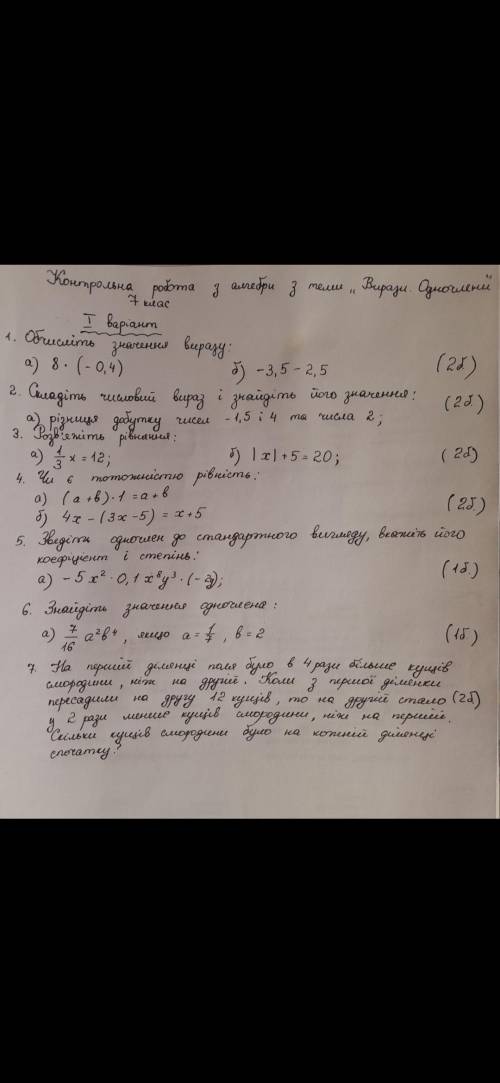 Контрольна робота з алгебри з теми „Вирази. Одночлени"
7 клас
I варіант
1. Обчисліть значення виразу:
а) 8 · (-0,4) б) -3,5 - 2,5 (2б)
2. Складіть числовий вираз і знайдіть його значення: (2б.)
а) різниця добутку чисел -1,5 і 4 та числа 2;
3. Розв'яжіть рівняння:
а) 1/3 x = 12; б) |x| + 5 = 20; (2б)
4. Чи є тотожністю рівність:
а) (a + b) · 1 = a + b (2б.)
б) 4x - (3x - 5) = x + 5
5. Зведіть одночлен до стандартного вигляду, вкажіть його
коефіцієнт і степінь:
а) -5x² · 0,1x⁸y³ · (-2y); (1б.)
6. Знайдіть значення одночлена:
а) 7/16 a²b⁴, якщо a = 1/7, b = 2 (1б)
7. На першій ділянці поля було в 4 рази більше кущів
смородини, ніж на другій. Коли з першої ділянки
пересадили на другу 12 кущів, то на другій стало (2б)
у 2 рази менше кущів смородини, ніж на першій.
Скільки кущів смородини було на кожній ділянці
спочатку?